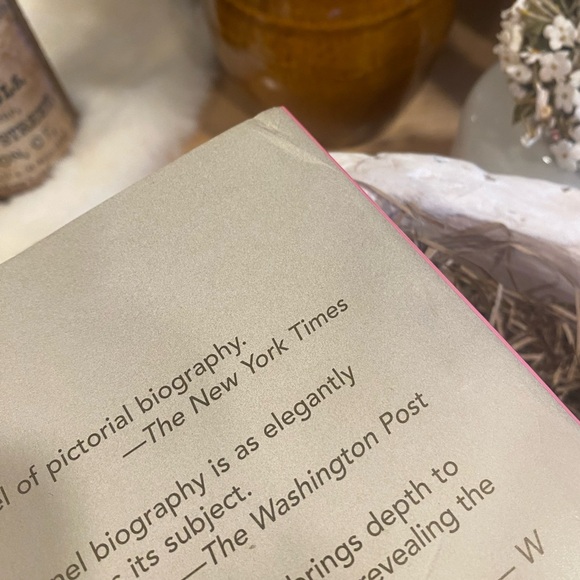 of pictorial biography.
—The New York Times
biography is as elegantly
its subject.
—The Washington Post
brings depth to
revealing the
— W
STREET